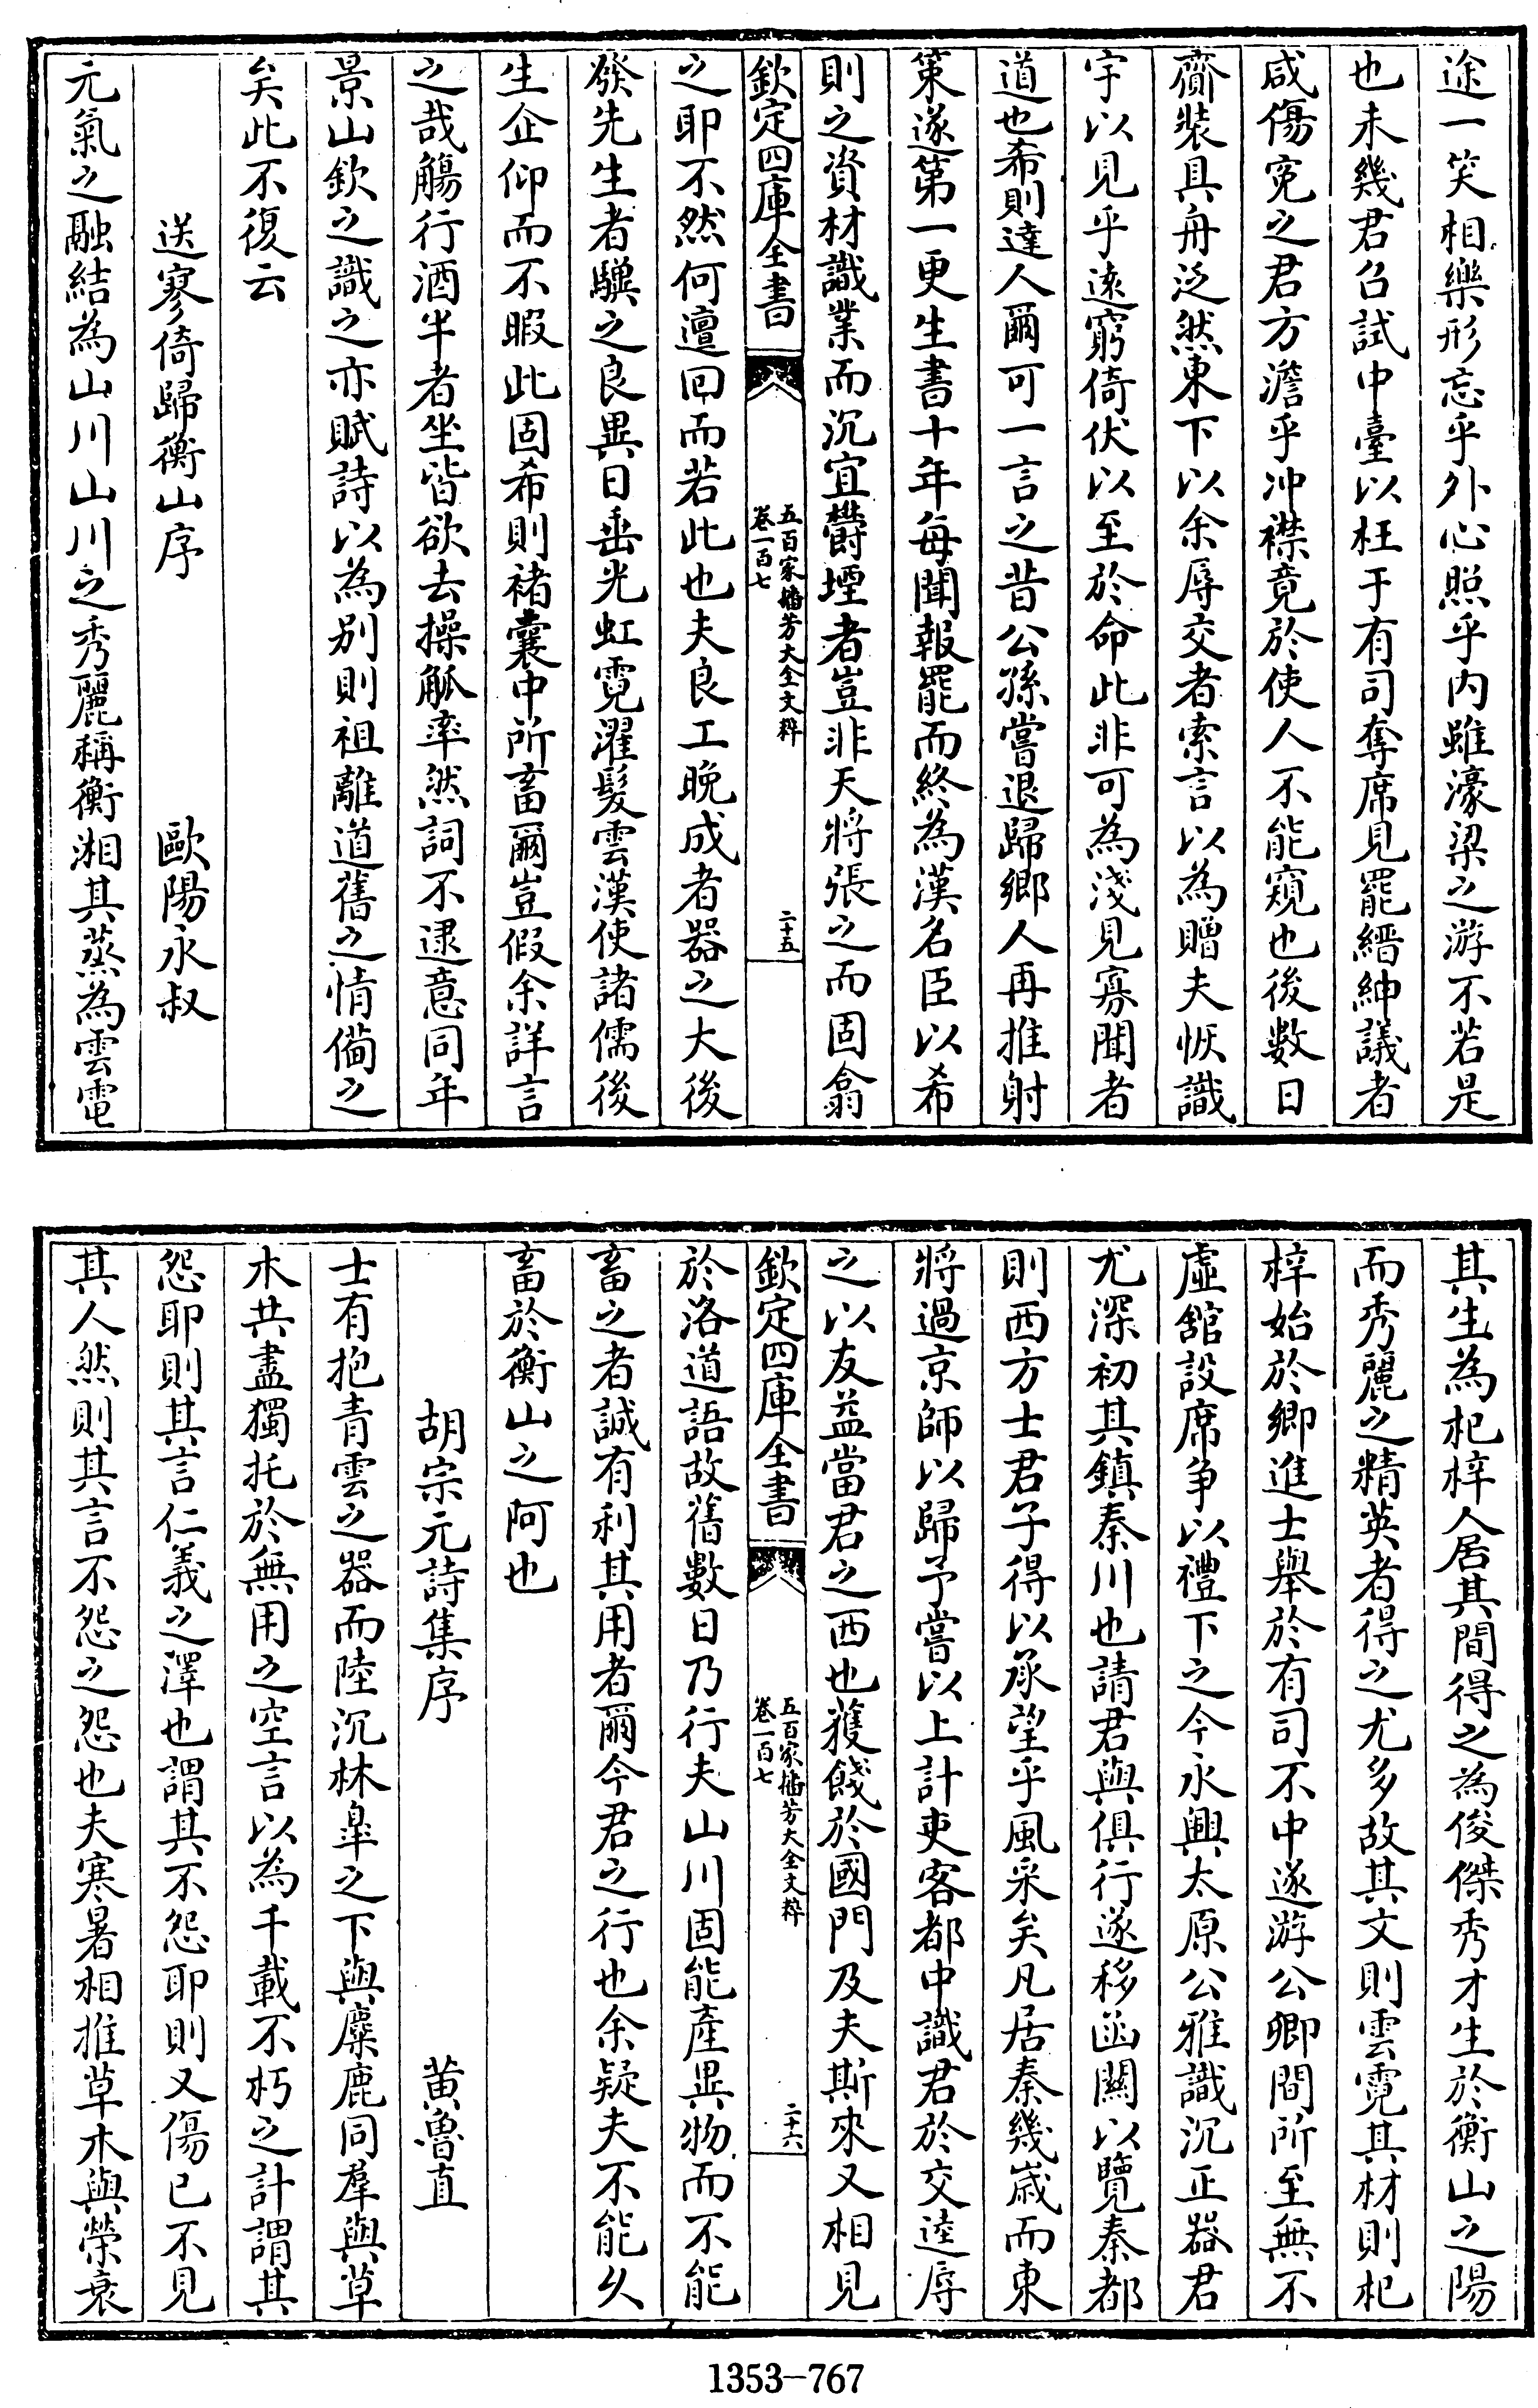 途一笑相樂形忘乎外心照乎内雖濠梁之游不若是
也未幾君召試中臺以枉于有司奪席見罷縉紳議者
咸傷寃之君方澹乎冲襟竟於使人不能窺也後數日
齎裝具舟泛然東下以余辱交者索言以為贈夫恢識
宇以見乎遠窮倚伏以至於命此非可為淺見寡聞者
道也希則達人爾可一言之昔公孫嘗退歸鄉人再推射
策遂第一更生書十年每聞報罷而終為漢名臣以希
則之資材識業而沉宜欝堙者豈非天將張之而固翕
欽定四庫全書
五百家播芳大全文粹
卷一百七
二十五
之耶不然何邅回而若此也夫良工晚成者器之大後
發先生者驥之良異日垂光虹霓濯髮雲漢使諸儒後
生企仰而不暇此固希則褚囊中所畜爾豈假余詳言
之哉觴行酒半者坐皆欲去操觚率然詞不逮意同年
景山欽之識之亦賦詩以為别則祖離道舊之情備之
矣此不復云
送寥倚歸衡山序 歐陽永叔
元氣之融結為山川山川之秀麗稱衡湘其蒸為雲電
其生為杞梓人居其間得之為俊傑秀才生於衡山之陽
而秀麗之精英者得之尤多故其文則雲霓其材則杞
梓始於鄉進士舉於有司不中遂游公卿間所至無不
虛舘設席争以禮下之今永興太原公雅識沉正器君
尤深初其鎮秦川也請君與俱行遂移函關以覽秦都
則西方士君子得以承望乎風采矣凡居秦幾歲而東
將過京師以歸予嘗以上計吏客都中識君於交逵辱
之以友益當君之西也獲餞於國門及夫斯來又相見
欽定四庫全書
五百家播芳大全文粹
卷一百七
二十六
於洛道語故舊數日乃行夫山川固能產異物而不能
畜之者誠有利其用者爾今君之行也余疑夫不能久
畜於衡山之阿也
胡宗元詩集序 黄魯直
士有抱青雲之器而陸沉林臯之下與麋鹿同羣與草
木共盡獨托於無用之空言以為千載不朽之計謂其
怨耶則其言仁義之澤也謂其不怨耶則又傷已不見
其人然則其言不怨之怨也夫寒暑相推草木與榮衰
1353-767